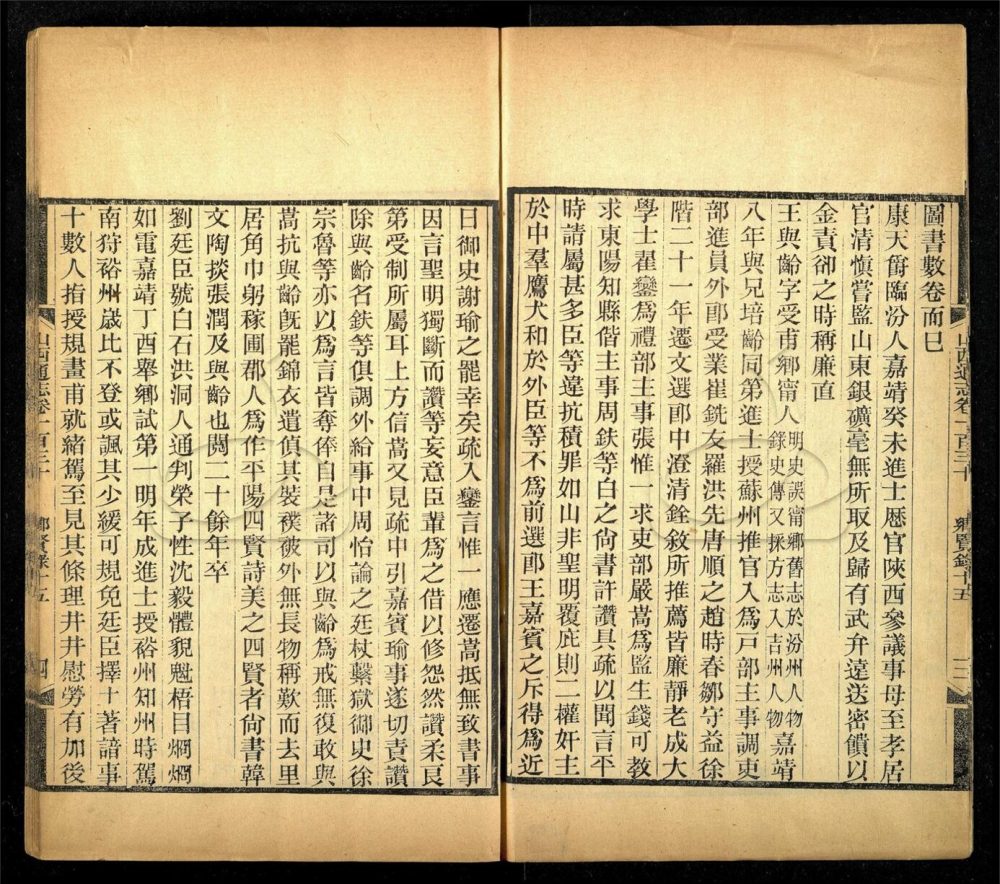 圖書數卷而已
康天爵臨汾人嘉靖癸未進士歷官陝西參議事母至孝居
官清愼嘗監山東銀礦毫無所取及歸有武弁遠送密饋以
金責卻之時稱廉直
王與齡字受甫鄉甯人明史誤甯鄉舊志於汾州人物
錄史傳又採方志入吉州人物嘉靖
八年與兄培齡同第進士授蘇州推官入爲戶部主事調吏
部進員外郎受業崔銑友羅洪先唐順之趙時春鄒守益徐
階二十一年遷文選郎中澄清銓敘所推薦皆廉靜老成大
學士翟鑾爲禮部主事張惟一求吏部嚴嵩爲監生錢可教
求東陽知縣偕主事周鈇等白之尙書許讚具疏以聞言平
時請屬甚多臣等違抗積罪如山非聖明覆庇則二權奸主
於中羣鷹犬和於外臣等不爲前選郎王嘉賓之斥得爲近
山西通志卷一百三十 鄉賢錄十五 三
日御史謝瑜之罷幸矣疏入鑾言惟一應遷嵩抵無致書事
因言聖明獨斷而讚等妄意臣輩爲之借以修怨然讚柔良
第受制所屬耳上方信嵩又見疏中引嘉賓瑜事遂切責讚
除與齡名鈇等俱調外給事中周怡論之廷杖繫獄御史徐
宗魯等亦以爲言皆奪俸自是諸司以與齡爲戒無復敢與
嵩抗與齡旣罷錦衣遣偵其裝襆被外無長物稱歎而去里
居角巾躬稼圃郡人爲作平陽四賢詩美之四賢者尙書韓
文陶掞張潤及與齡也閱二十餘年卒
劉廷臣號白石洪洞人通判榮子性沈毅體貌魁梧目烱烱
如電嘉靖丁酉舉鄉試第一明年成進士授裕州知州時駕
南狩裕州歲比不登或諷其少緩可規免廷臣擇十著諳事
十數人指授規畫甫就緒駕至見其條理井井慰勞有加後
山西通志卷一百三十 鄉賢錄十五 四